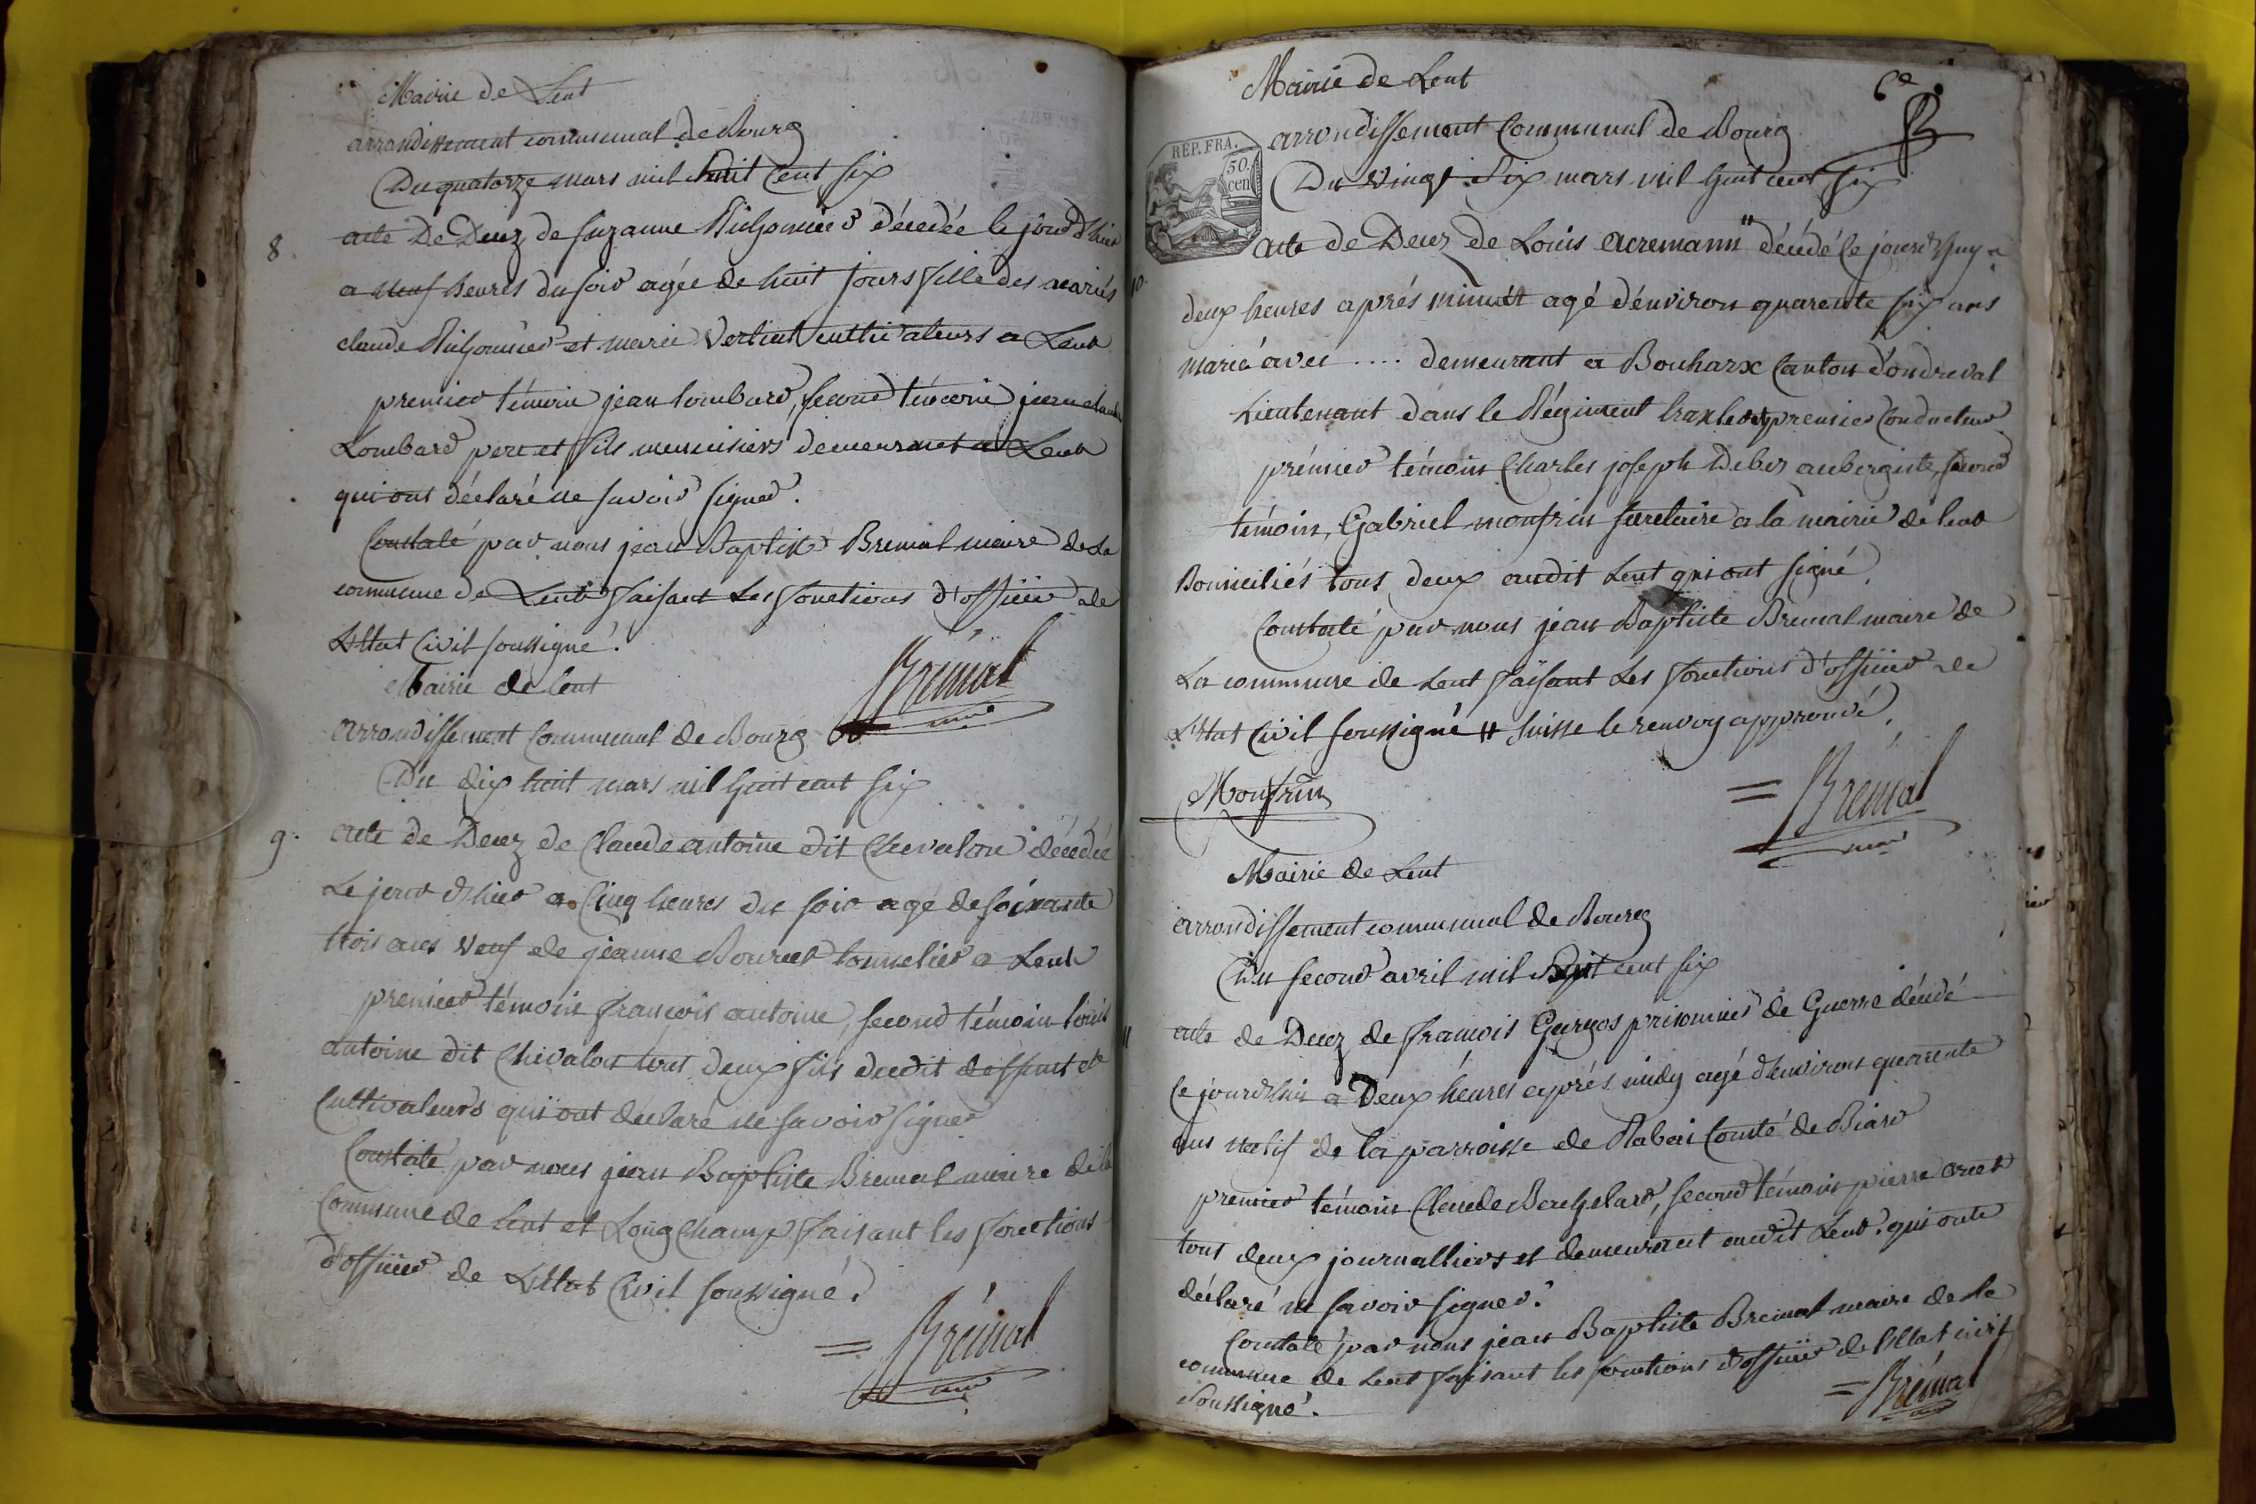 Mairie de Lent
arrondissement communal de Bourg
Du quatorze mars mil huit Cent six
8. acte De Decez de suzanne décédée le jour d'hier
a neuf heures du soir agée de huit jours fille des mariés
claude et marie cultivateurs a Lent
premier témoin jean Lombard, second témoin jean claude
Lombard pere et fils menuisiers demeurant a Lent
qui ont déclaré ne savoir signer.
Constaté par nous jean Baptiste Bremal maire de La
commune de Lent faisant Les fonctions d'officier de
L'Etat Civil soussigné.
Bremal
Mairie de lent
arrondissement Communal de Bourg
Du dix huit mars mil huit cent six
9. acte de Decez de Claude antoine dit Chevalon décédé
Le jour d'hier a Cinq heures du soir agé de soixante
trois ans veuf de jeanne tonnelier a Lent
premier témoin françois antoine, second témoin louis
antoine dit Chevalon tous deux fils dudit deffunt et
Cultivateurs qui ont declaré ne savoir signer
Constaté par nous jean Baptiste Bremal maire de la
Commune de lent et Longchamp faisant les fonctions
d'officier de L'Etat Civil soussigné.
= Brémal
6e
Mairie de Lent
REP. FRA.
50.
cen
arrondissement Communal de Bourg
Du vingt Six mars mil huit cent six
10 acte de Decez de Louis acremann " décédé le jourd'huy a
deux heures aprés minuit agé d'environ quarente six ans
marié avec .... demeurant a Bouharx Canton d'ondreval
Lieutenant dans le Régiment premier Conducteur
prémier témoin Charles joseph Debez aubergiste, second
témoin, Gabriel monfrin secretaire a la mairie de lent
Domiciliés tous deux audit Lent qui ont signé.
Constaté par nous jean Baptiste Bremal maire de
La commune de Lent faisant Les fonctions d'officier de
L'Etat Civil soussigné # suisse le renvoy approuvé.
Monfrin
= Brémal
Mairie de Lent
arrondissement communal de Bourg
Du second avril mil huit cent six
11 acte de Decez de françois prisonnier de Guerre décédé
Ce jourd'hui a Deux heures aprés midy agé d'environ quarente
ans natif de la parroisse de Rabai Comté de
premier témoin Claude second témoin pierre
tous deux journalliers et demeurant audit Lent. qui ont
déclaré ne savoir signer.
Constaté par nous jean Baptiste Bremal maire de la
commune de Lent faisant les fonctions d'officier de l'Etat civil
soussigné.
= Brémal